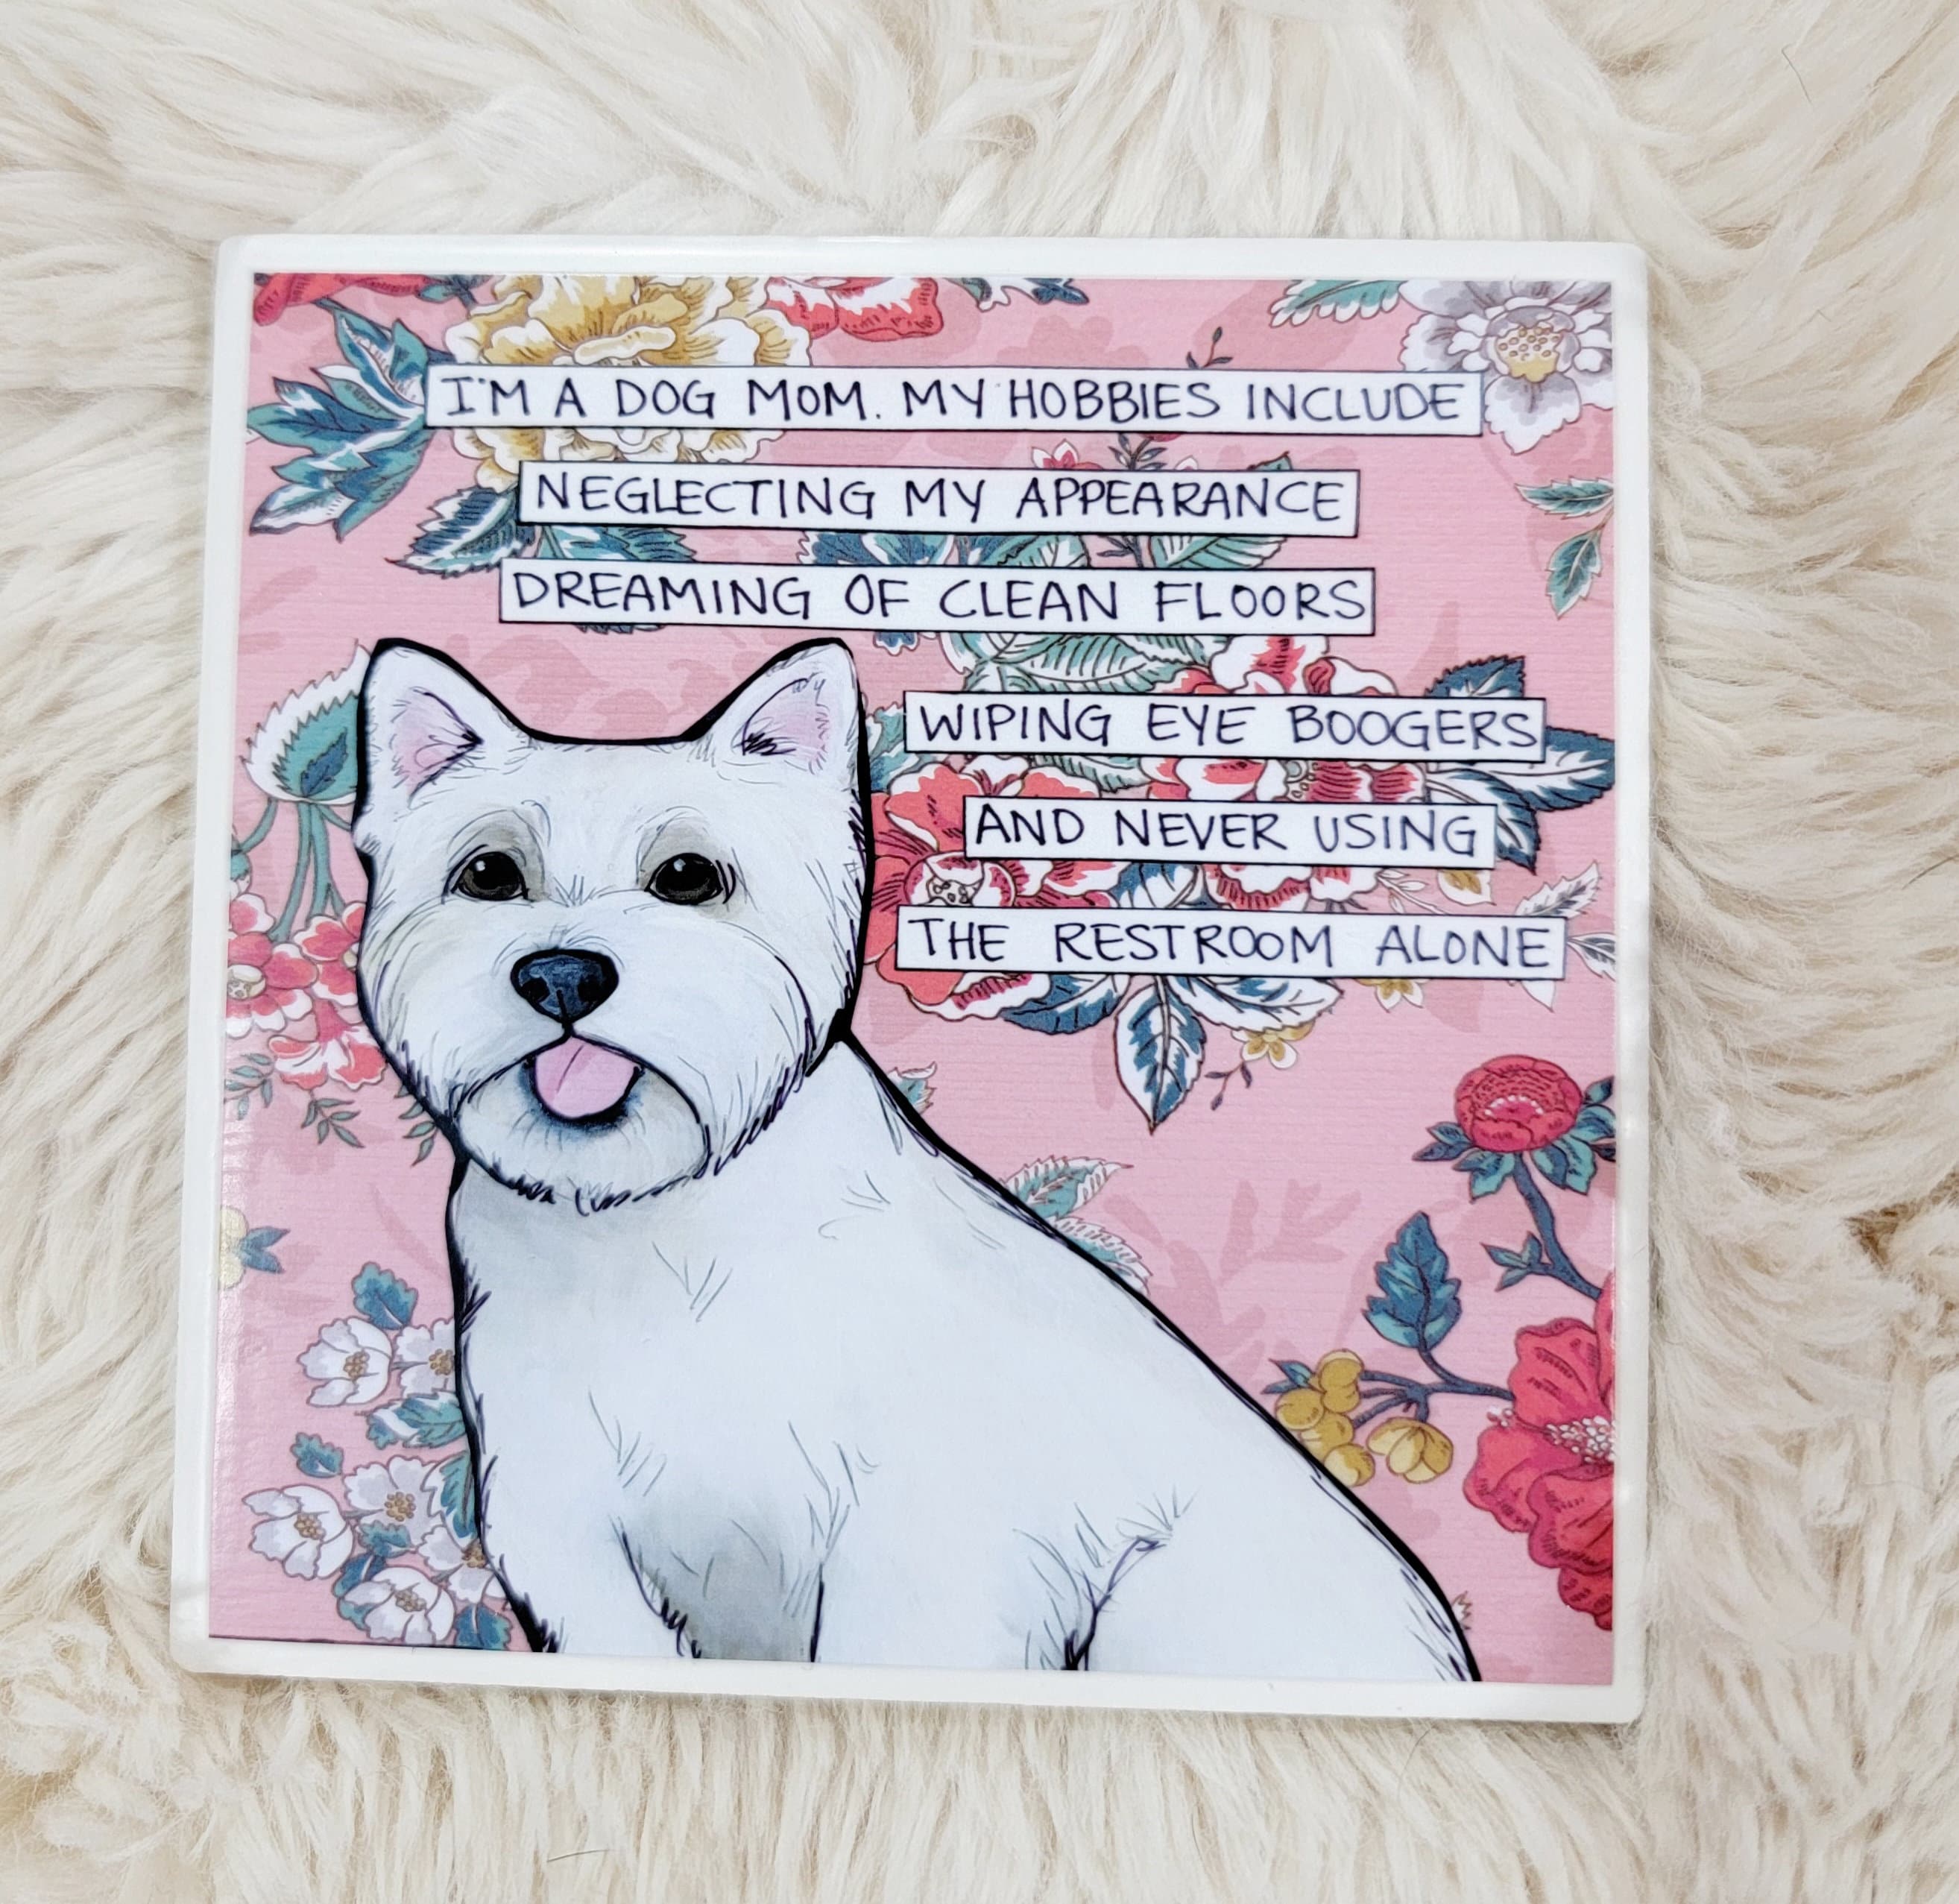 I'M A DOG MOM. MY HOBBIES INCLUDE
NEGLECTING MY APPEARANCE
DREAMING OF CLEAN FLOORS
WIPING EYE BOOGERS
AND NEVER USING
THE RESTROOM ALONE